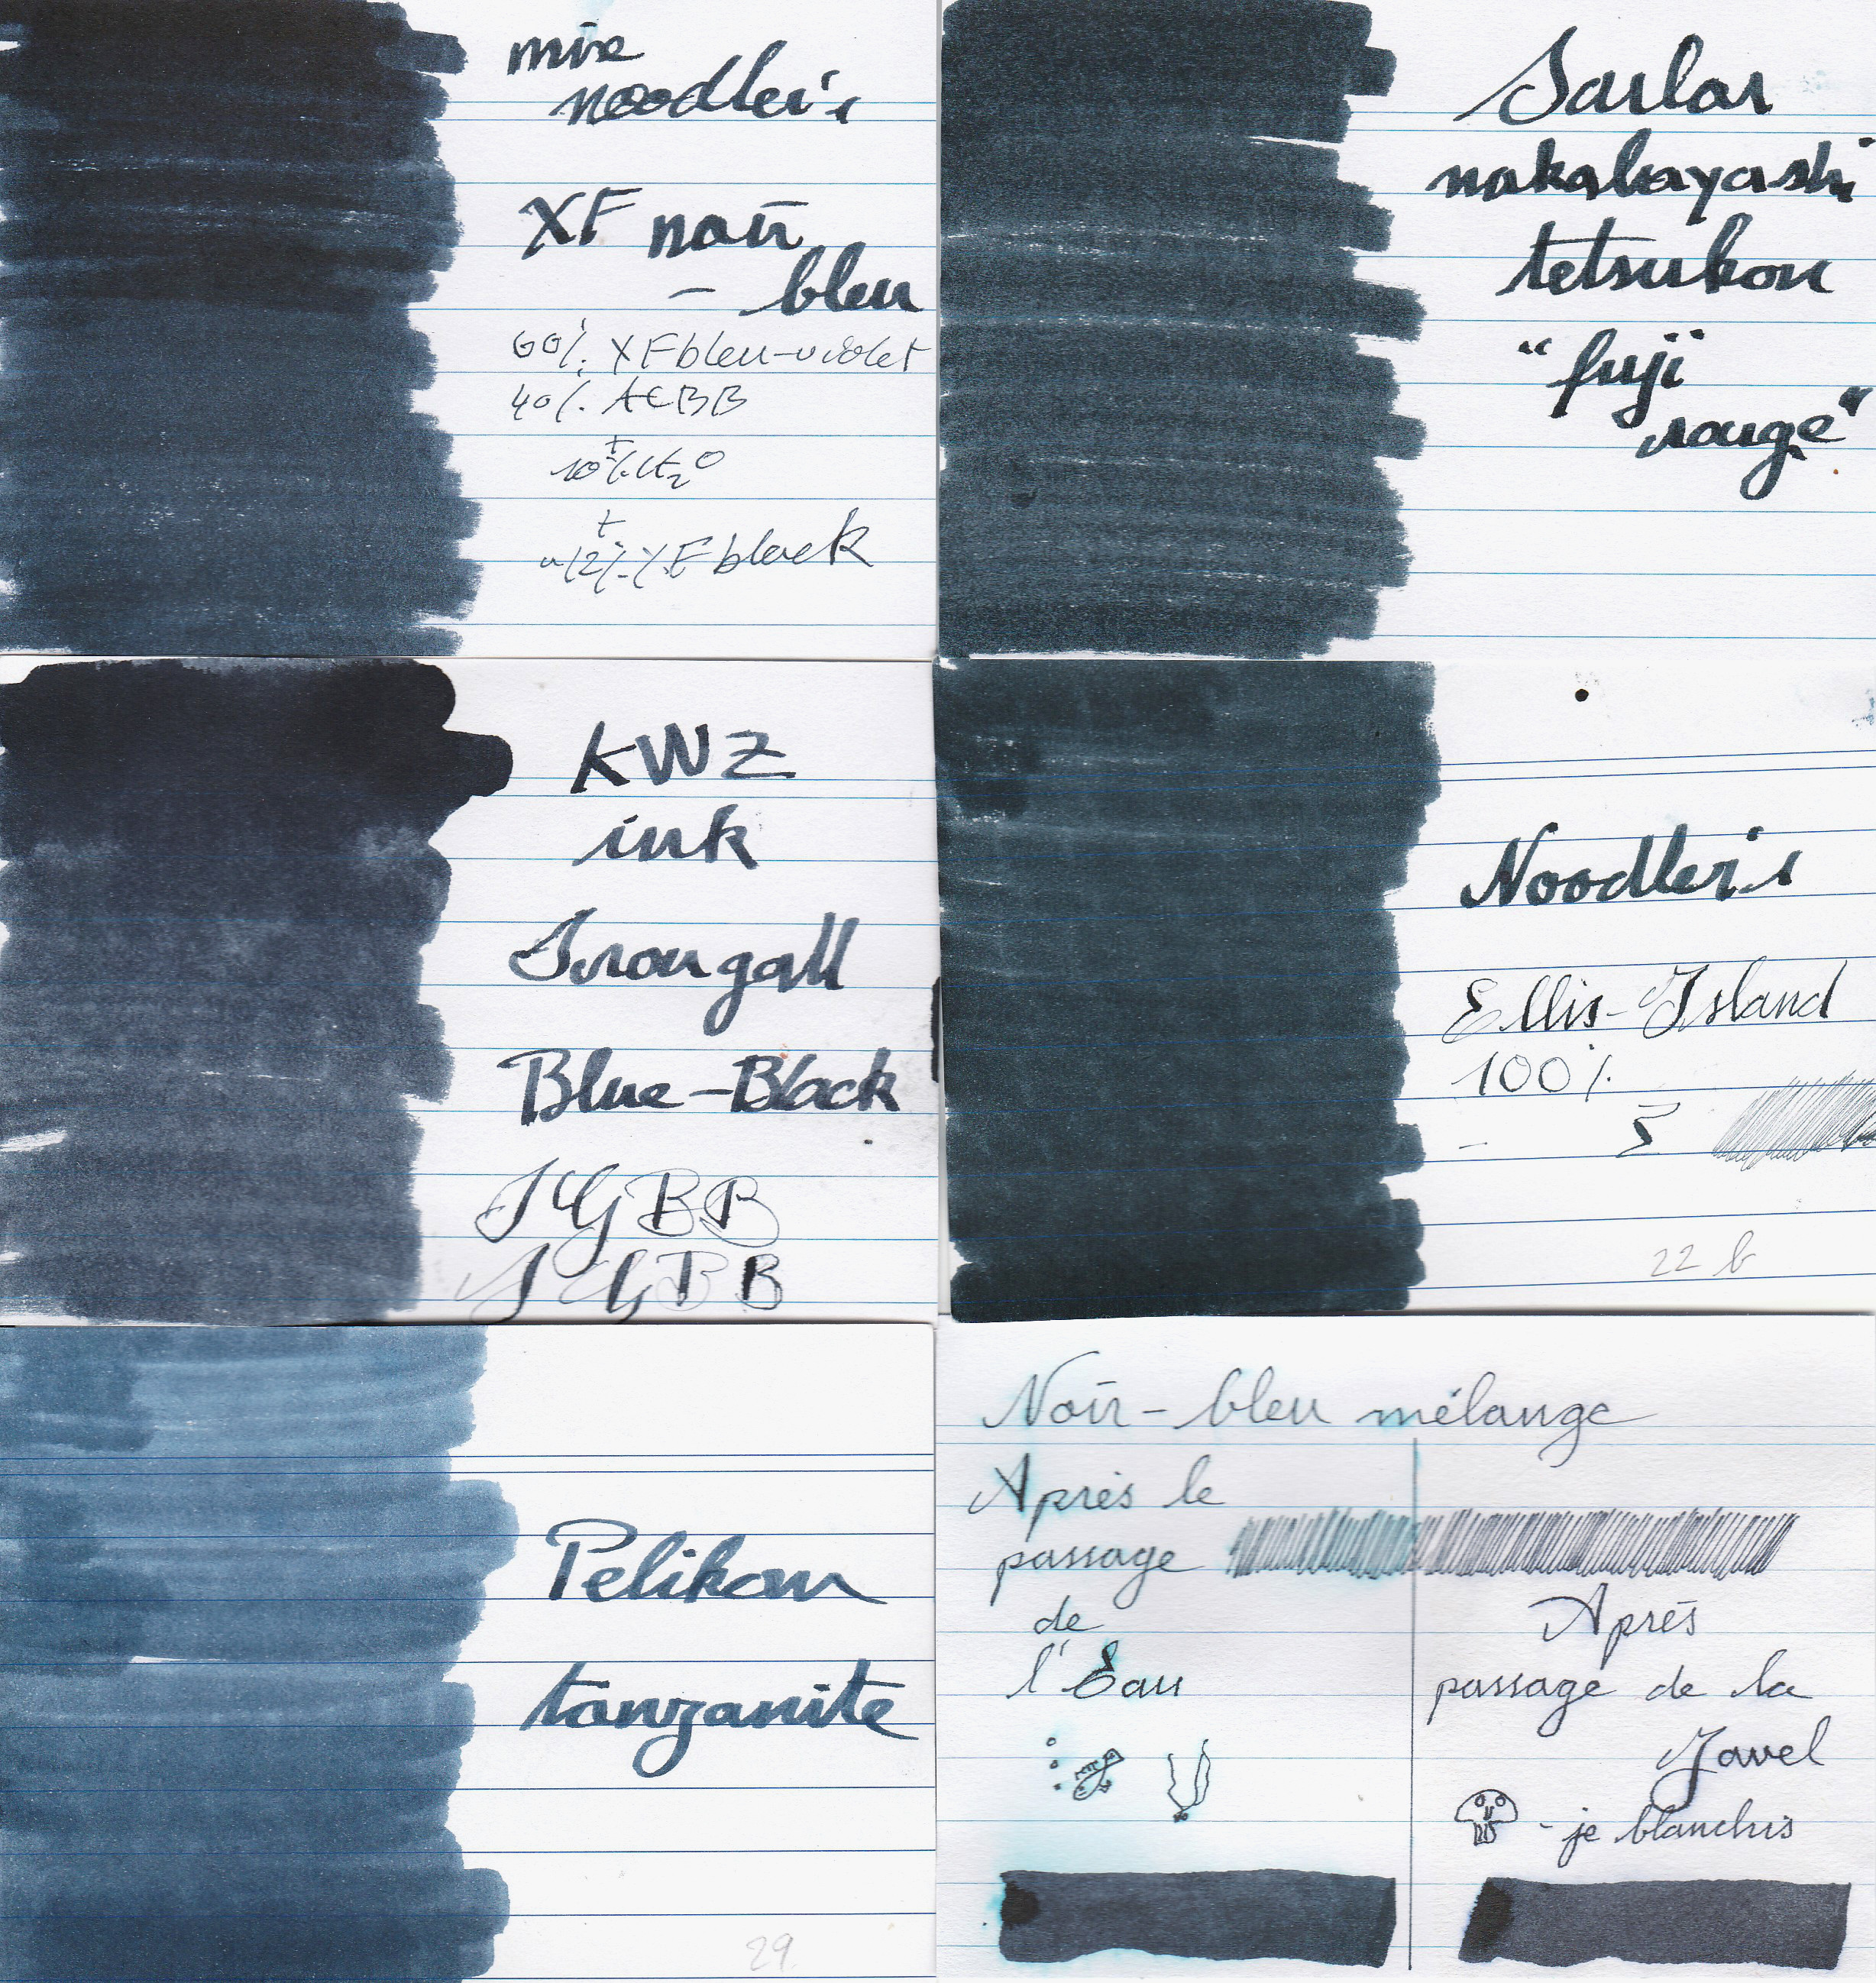 mix
noodler's
XF noir
- bleu
60% XF bleu-violet
40% ACBB
+
10% H2O
+
~12% XF black
Sailor
nakabayashi
tetsukon
"fuji
rouge"
KWZ
ink
Iron gall
Blue-Black
IGBB
IGBB
Noodler's
Ellis-Island
100%
22 b
Pelikan
tanzanite
29
Noir-bleu mélange
Après le
passage
de
l'Eau
Après
passage de la
Javel
- je blanchis